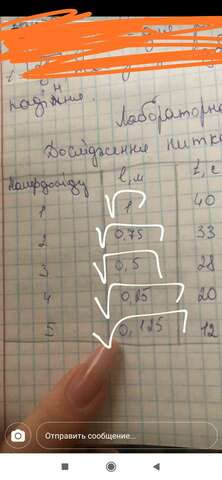 падіння.
Лабораторна
Дослідження нитка
Номер досліду l, м t, с
1 1 40
2 0,75 33
3 0,5 28
4 0,25 20
5 0,125 12
Отправить сообщение...